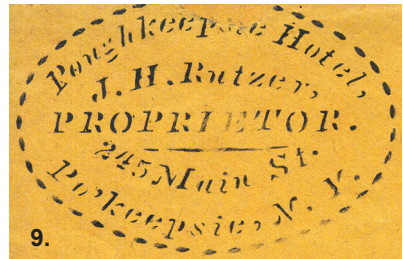 Poughkeepsie Hotel,
J. H. Rutzer,
PROPRIETOR.
245 Main St.
Po'keepsie, N. Y.
9.